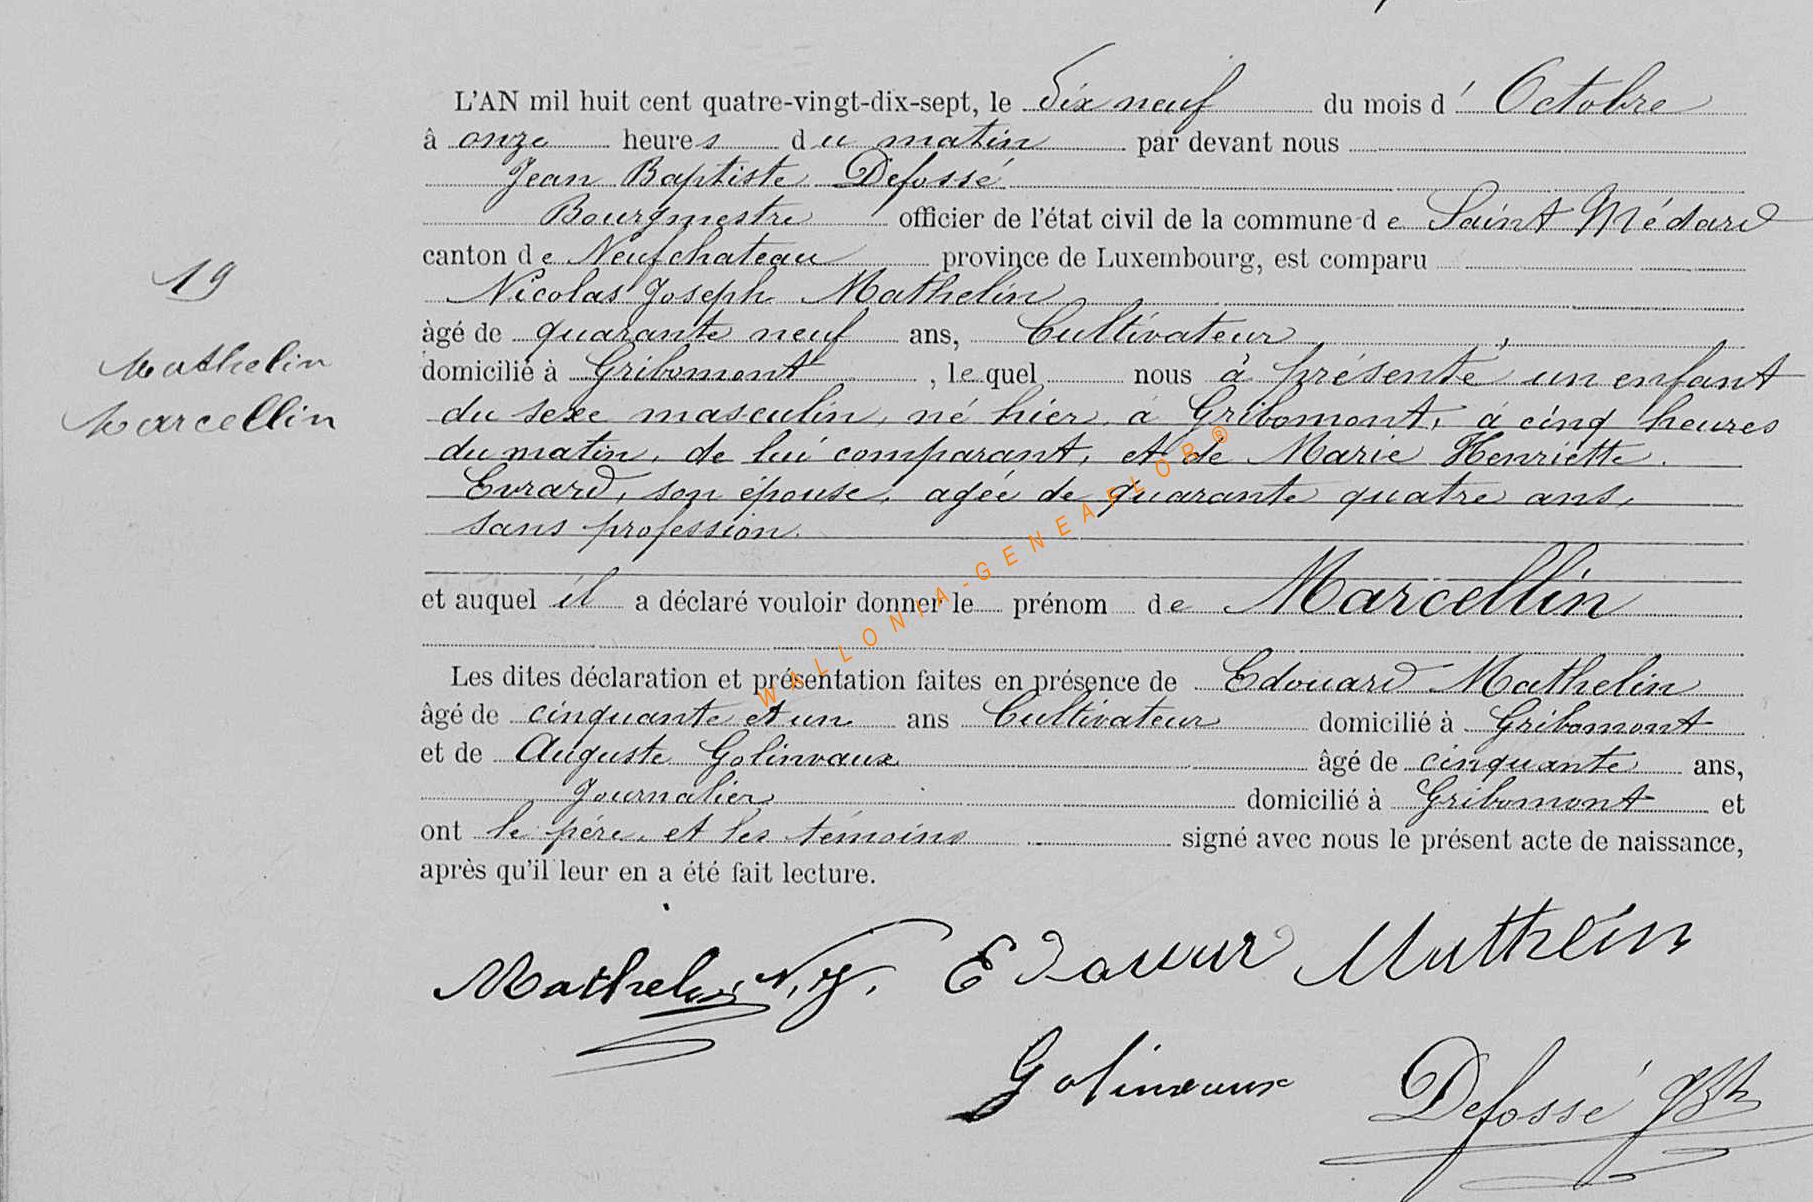 L'AN mil huit cent quatre-vingt-dix-sept, le dix neuf du mois d' Octobre
à onze heures du matin par devant nous
Jean Baptiste Defossé
Bourgmestre officier de l'état civil de la commune de Saint Médard
canton de Neufchateau province de Luxembourg, est comparu
19
Nicolas Joseph Mathelin
âgé de quarante neuf ans, Cultivateur,
Mathelin
domicilié à Gribomont, lequel nous à présenté un enfant
Marcellin
du sexe masculin, né hier, à Gribomont, à cinq heures
du matin, de lui comparant, et de Marie Henriette
Evrard, son épouse, agée de quarante quatre ans,
sans profession.
et auquel il a déclaré vouloir donner le prénom de Marcellin
Les dites déclaration et présentation faites en présence de Edouard Mathelin
âgé de cinquante et un ans Cultivateur domicilié à Gribomont
et de Auguste Golinvaux âgé de cinquante ans,
Journalier domicilié à Gribomont et
ont le père, et les témoins signé avec nous le présent acte de naissance,
après qu'il leur en a été fait lecture.
Mathelin, N. J. Edouard Mathelin
Golinvaux Defossé JBte
WALLONIA-GENEAFLOR®